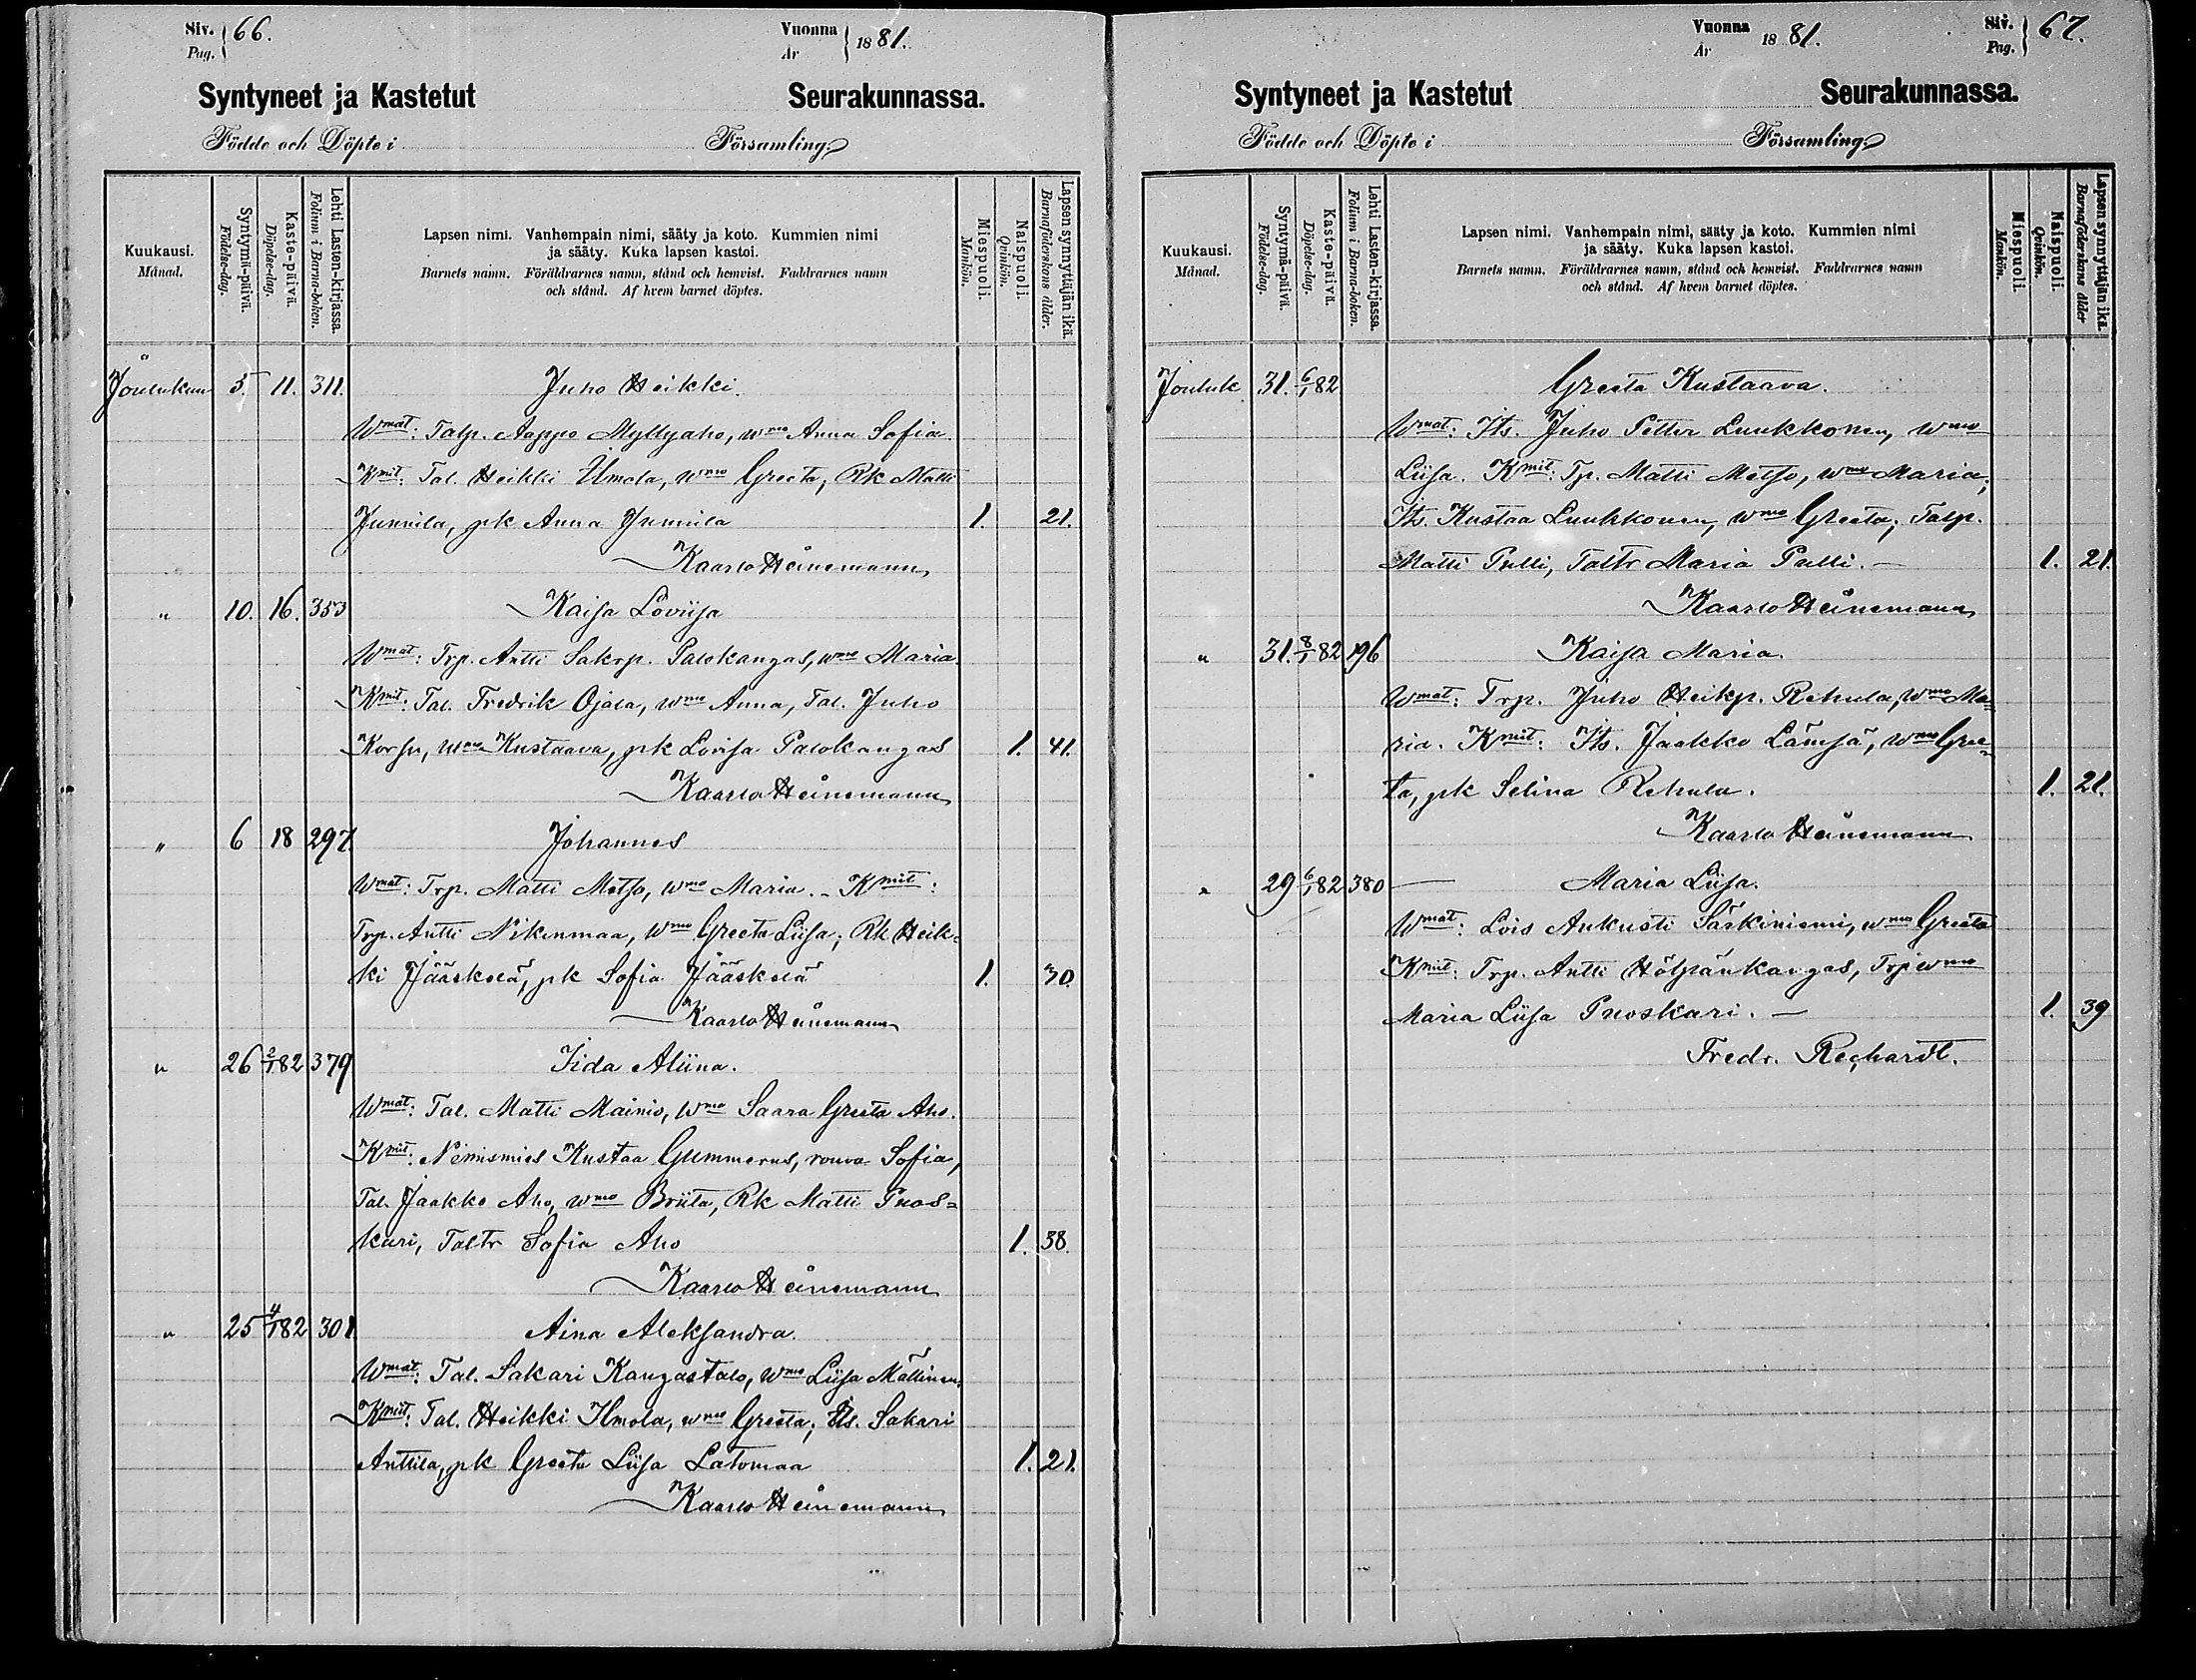 Siv. Pag. 66.
Vuonna År 1881.
Syntyneet ja Kastetut Seurakunnassa.
Födde och Döpte i Församling.
Kuukausi. Månad.
Syntymä-päivä. Födelse-dag.
Kaste-päivä. Döpelse-dag.
Lehti Lasten-kirjassa. Folium i Barna-boken.
Lapsen nimi. Vanhempain nimi, sääty ja koto. Kummien nimi
ja sääty. Kuka lapsen kastoi.
Barnets namn. Föräldrarnes namn, stånd och hemvist. Faddrarnes namn
och stånd. Af hvem barnet döptes.
Miespuoli. Mankön.
Naispuoli. Qvinkön.
Lapsen synnyttäjän ikä. Barnaföderskans ålder.
Joulukuu 5. 11. 311. Juho Heikki.
Wmat: Talp. Aappo Myllyaho, wmo Anna Sofia.
Kmit: Tal. Heikki Ilmola, wmo Greeta, Rk Matti
Junnila, pk Anna Junnila 1. 21.
Kaarlo Heinemann
" 10. 16. 353 Kaisa Loviisa
Wmat: Trp. Antti Sakrp. Palokangas, wmo Maria.
Kmit: Tal. Fredrik Ojala, wmo Anna, Tal. Juho
Korsu, wmo Kustaava, pk Lovisa Palokangas 1. 41.
Kaarlo Heinemann
" 6 18 297 Johannes
Wmat: Trp. Matti Metso, wmo Maria. - Kmit:
Trp. Antti Nikenmaa, wmo Greeta Liisa; Rk Heik-
ki Jääskelä, pk Sofia Jääskelä 1. 30.
Kaarlo Heinemann
" 26 2/1 82 379 Iida Aliina.
Wmat: Tal. Matti Mainio, wmo Saara Greeta Aho.
Kmit: Nimismies Kustaa Gummerus, rouva Sofia,
Tal. Jaakko Aho, wmo Briita, Rk Matti Puos=
kari, Taltr Sofia Aho 1. 38.
Kaarlo Heinemann
" 25 4/1 82 301 Aina Aleksandra.
Wmat: Tal. Sakari Kangastalo, wmo Liisa Mällinen.
Kmit: Tal. Heikki Ilmola, wmo Greeta; Its. Sakari
Anttila, pk Greeta Liisa Latomaa 1. 21.
Kaarlo Heinemann
Vuonna År 1881.
Siv. Pag. 67.
Syntyneet ja Kastetut Seurakunnassa.
Födde och Döpte i Församling.
Kuukausi. Månad.
Syntymä-päivä. Födelse-dag.
Kaste-päivä. Döpelse-dag.
Lehti Lasten-kirjassa. Folium i Barna-boken.
Lapsen nimi. Vanhempain nimi, sääty ja koto. Kummien nimi
ja sääty. Kuka lapsen kastoi.
Barnets namn. Föräldrarnes namn, stånd och hemvist. Faddrarnes namn
och stånd. Af hvem barnet döptes.
Miespuoli. Mankön.
Naispuoli. Qvinkön.
Lapsen synnyttäjän ikä. Barnaföderskans ålder
Jouluk. 31. 6/1 82 Greeta Kustaava.
Wmat: Its. Juho Petter Luukkonen, wmo
Liisa. Kmit: Tp. Matti Metso, wmo Maria;
Its. Kustaa Luukkonen, wmo Greeta; Talp.
Matti Pulli, Taltr Maria Pulli. - 1. 21
Kaarlo Heinemann
" 31. 8/1 82 196 Kaisa Maria.
Wmat: Trp. Juho Heikp. Rehula, wmo Ma=
ria. Kmit: Its. Jaakko Lämsä, wmo Gree=
ta, pk Selina Rehula. 1. 21.
Kaarlo Heinemann
" 29 6/1 82 380 Maria Liisa.
Wmat: Lois Aukusti Särkiniemi, wmo Greeta
Kmit: Trp. Antti Hölpänkangas, Trp wmo
Maria Liisa Puoskari. - 1. 39
Fredr. Rechardt.